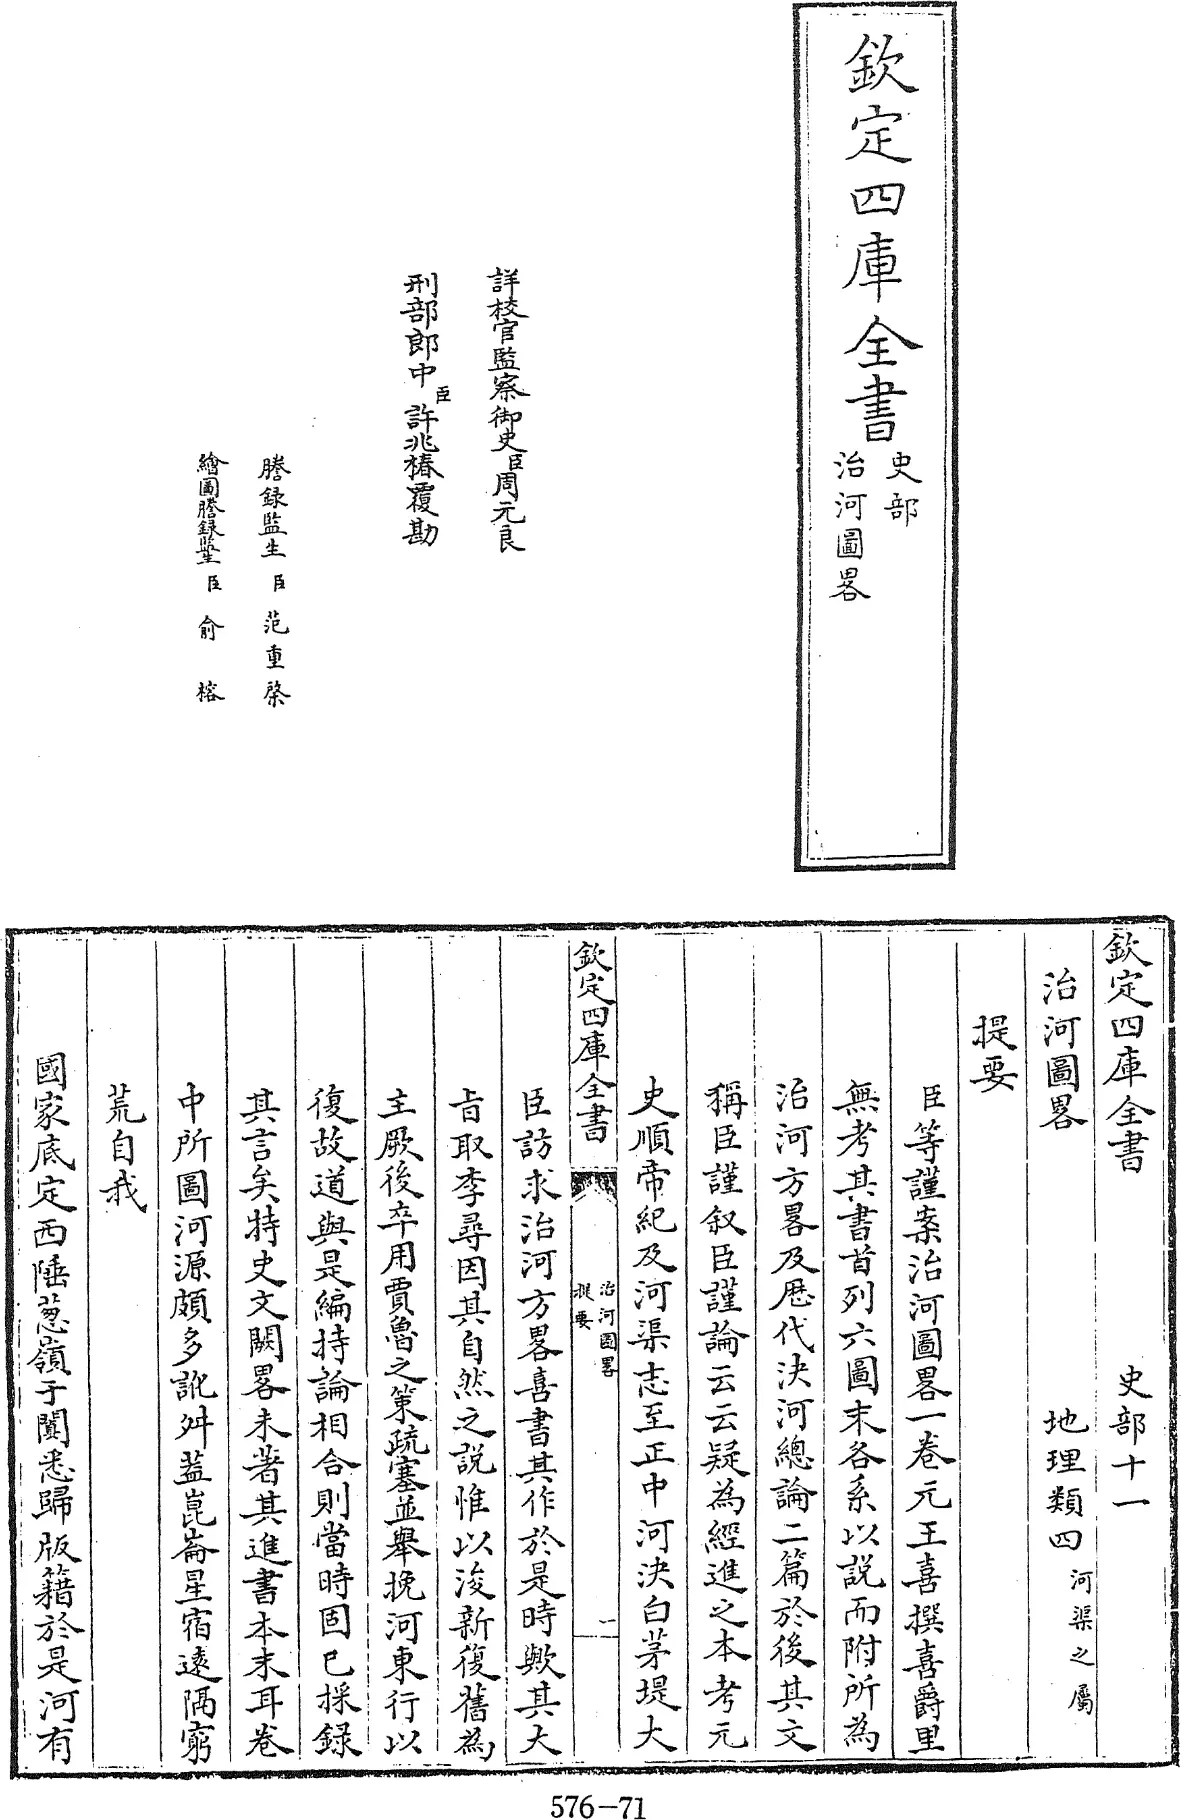 欽定四庫全書
史部
治河圖畧
詳校官監察御史臣周元良
刑部郎中臣許兆椿覆勘
謄録監生臣范重棨
繪圖謄録監生臣俞榕
欽定四庫全書 史部十一
治河圖畧 地理類四 河渠之屬
提要
臣等謹案治河圖畧一卷元王喜撰喜爵里
無考其書首列六圖末各系以説而附所為
治河方畧及歴代決河總論二篇於後其文
稱臣謹叙臣謹論云云疑為經進之本考元
史順帝紀及河渠志至正中河決白茅堤大
欽定四庫全書
治河圖畧
提要
一
臣訪求治河方畧喜書其作於是時歟其大
旨取李尋因其自然之説惟以浚新復舊為
主厥後卒用賈魯之策疏塞並舉挽河東行以
復故道與是編持論相合則當時固已採録
其言矣特史文闕畧未著其進書本末耳卷
中所圖河源頗多訛舛蓋崑崙星宿逺隔窮
荒自我
國家底定西陲葱嶺于闐悉歸版籍於是河有
576-71